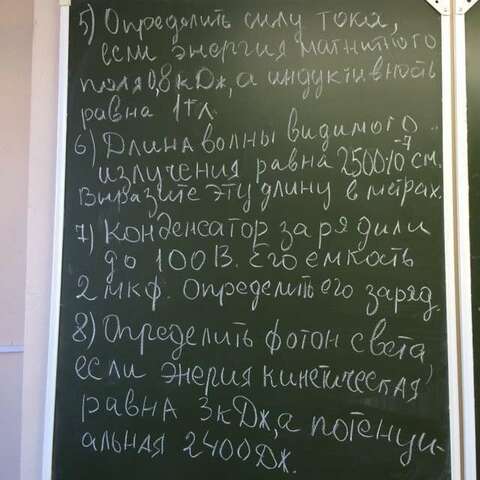 5) Определить силу тока,
если энергия магнитного
поля 0,8 кДж, а индуктивность
равна 1тл.
6) Длина волны видимого
излучения равна 2500·10⁻⁷ см.
Выразите эту длину в метрах.
7) Конденсатор зарядили
до 100 В. Его емкость
2 мкф. Определить его заряд.
8) Определить фотон света
если энерия кинетическая
равна 3 кДж, а потенци-
альная 2400 Дж.